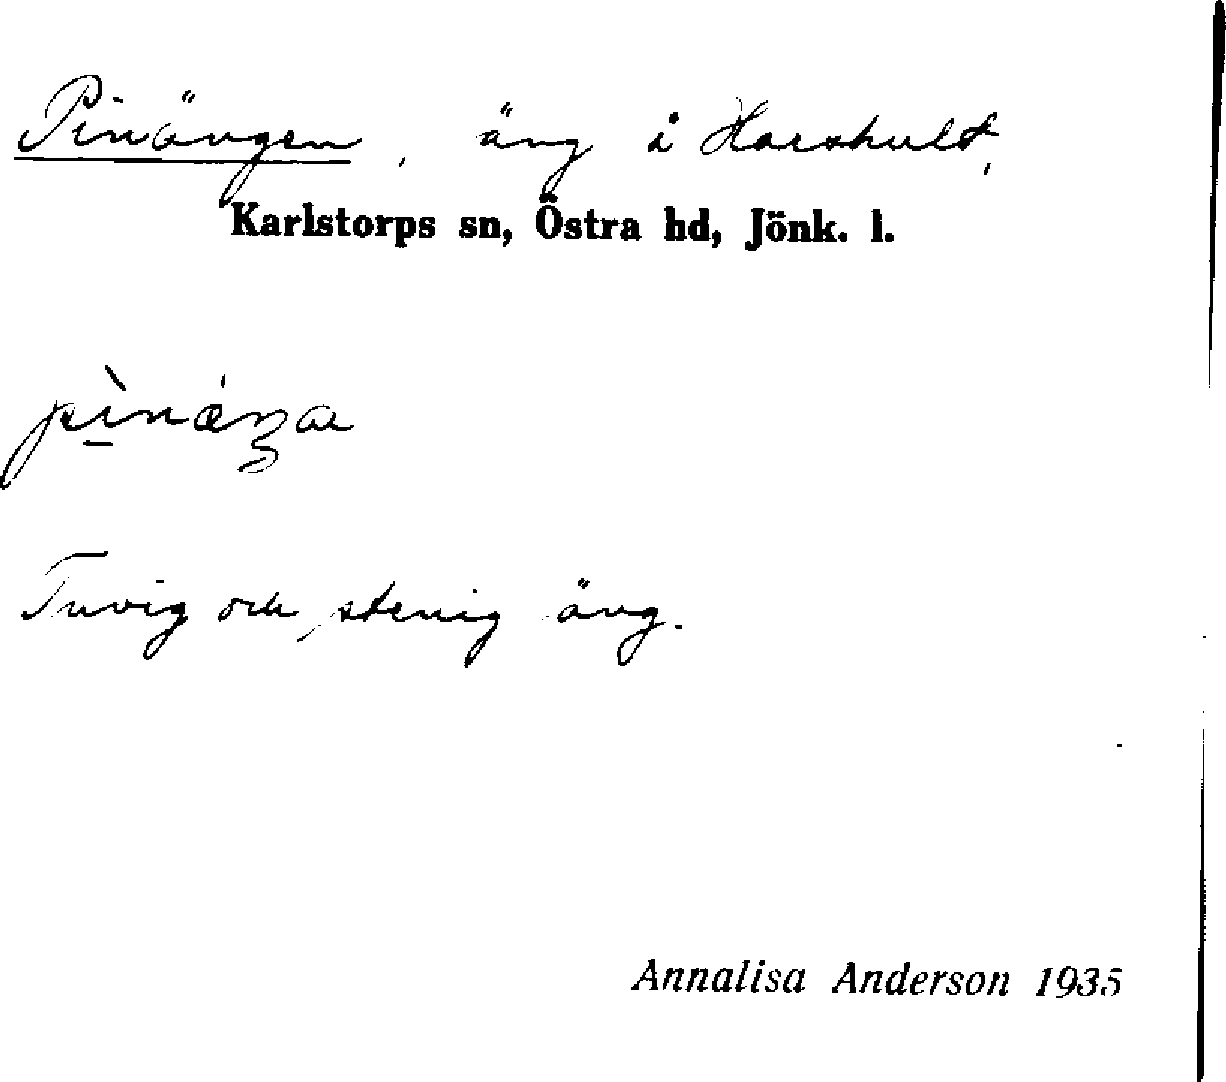 Pinängen, äng i Harshult,
Karlstorps sn, Östra hd, Jönk. l.
Tuvig och stenig äng.
Annalisa Anderson 1935